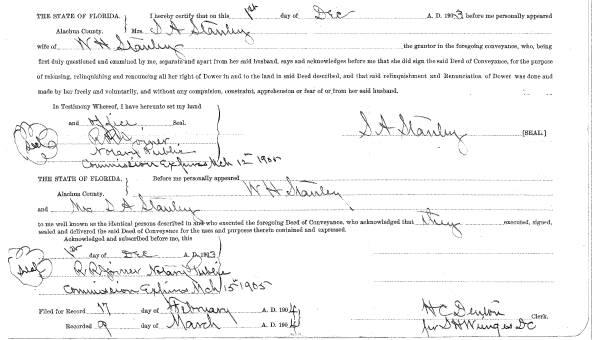 THE STATE OF FLORIDA. } I hereby certify that on this 1st day of Dec A. D. 1903 before me personally appeared
Alachua County. Mrs. S A Stanley
wife of W H Stanley the grantor in the foregoing conveyance, who, being
first duly questioned and examined by me, separate and apart from her said husband, says and acknowledges before me that she did sign the said Deed of Conveyance, for the purpose
of releasing, relinquishing and renouncing all her right of Dower in and to the land in said Deed described, and that said relinquishment and Renunciation of Dower was done and
made by her freely and voluntarily, and without any compulsion, constraint, apprehension or fear of or from her said husband.
In Testimony Whereof, I have hereunto set my hand
and office Seal.
Seal R R Joiner S A Stanley [SEAL.]
Notary Public
Commission Expires Mch 15 1905
THE STATE OF FLORIDA. } Before me personally appeared W H Stanley
Alachua County.
and Mrs S A Stanley
to me well known as the identical persons described in and who executed the foregoing Deed of Conveyance, who acknowledged that they executed, signed,
sealed and delivered the said Deed of Conveyance for the uses and purposes therein contained and expressed.
Acknowledged and subscribed before me, this
1st day of Dec A. D. 1903
Seal R R Joiner Notary Public
Commission Expires Mch 15th 1905
Filed for Record 17 day of February A. D. 1904 H C Denton Clerk.
Recorded 9 day of March A. D. 1904 per S H Wienges DC